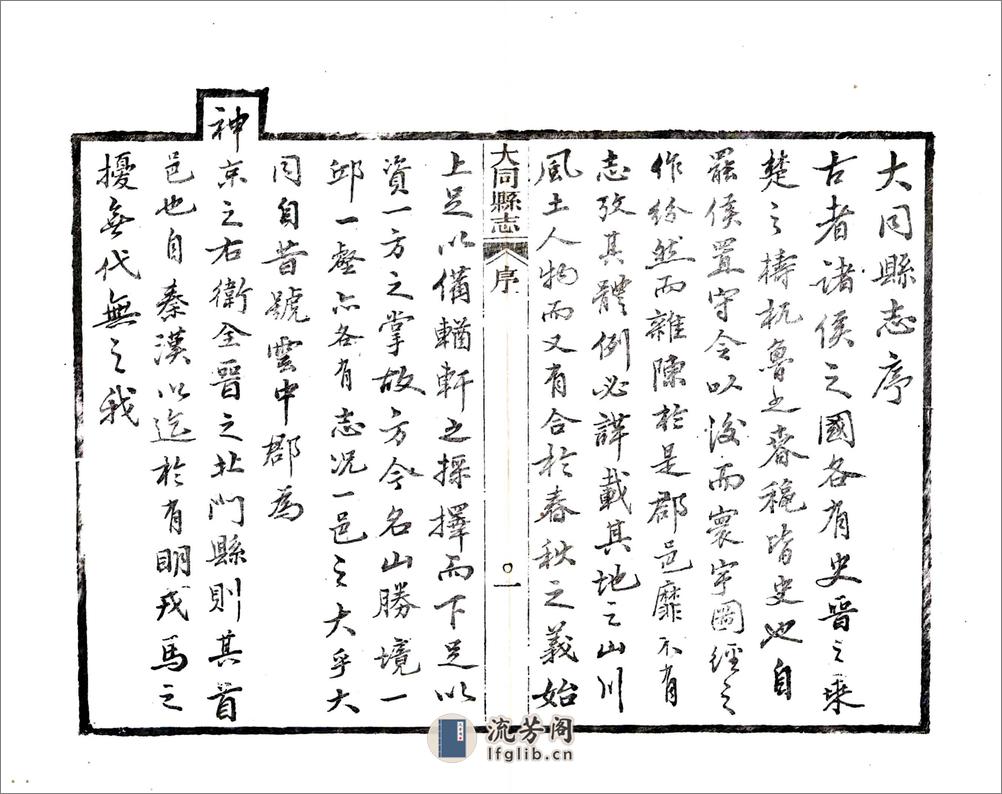 大同縣志序
古者諸侯之國各有史晉之乘
楚之檮杌魯之春秋皆史也自
罷侯置守令以後而寰宇圖經之
作紛然而雜陳於是郡邑靡不有
志攷其體例必詳載其地之山川
風土人物而又有合於春秋之義始
大同縣志
序
一
上足以備輶軒之採擇而下足以
資一方之掌故方今名山勝境一
邱一壑亦各有志况一邑之大乎大
同自昔號雲中郡為
神京之右衛全晉之北門縣則其首
邑也自秦漢以迄於有明戎馬之
擾無代無之我
流芳阁
lfglib.cn